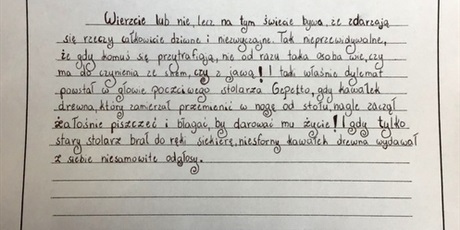 Wierzcie lub nie, lecz na tym świecie bywa, że zdarzają
się rzeczy całkowicie dziwne i niezwyczajne. Tak nieprzewidywalne,
że gdy komuś się przytrafiają, nie od razu taka osoba wie, czy
ma do czynienia ze snem, czy z jawą! I taki właśnie dylemat
powstał w głowie poczciwego stolarza Gepetto, gdy kawałek
drewna, który zamierzał przemienić w nogę od stołu, nagle zaczął
żałośnie piszczeć i błagać, by darować mu życie! I gdy tylko
stary stolarz brał do ręki siekierę, niesforny kawałek drewna wydawał
z siebie niesamowite odgłosy.